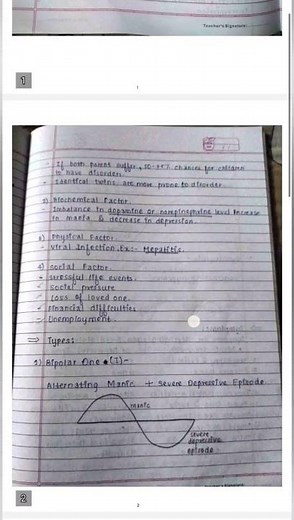 Teacher's Signature
1
1
- If both parent suffer, 50-75% chances for children
to have disorders.
- Identical twins are more prone to disorder.
2) Biochemical Factor.
Imbalance in dopamine or norepinephrine level increase
in mania & decrease in depression.
3) Physical Factor.
- Viral Infection. Ex:- Hepatitis.
4) Social Factor.
Stressful life events.
Social pressure
Loss of loved one.
Financial difficulties
Unemployment.
⇒ Types:
1) Bipolar One (I)-
Alternating Manic + Severe Depressive Episode
manic
severe
depressive
episode
Teacher's Signature
2
2